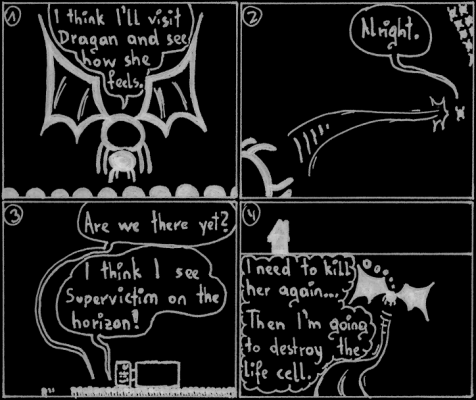 1
I think I'll visit
Dragan and see
how she
feels.
2
Alright.
3
Are we there yet?
I think I see
Supervictim on the
horizon!
Life
4
I need to kill
her again...
Then I'm going
to destroy the
life cell.